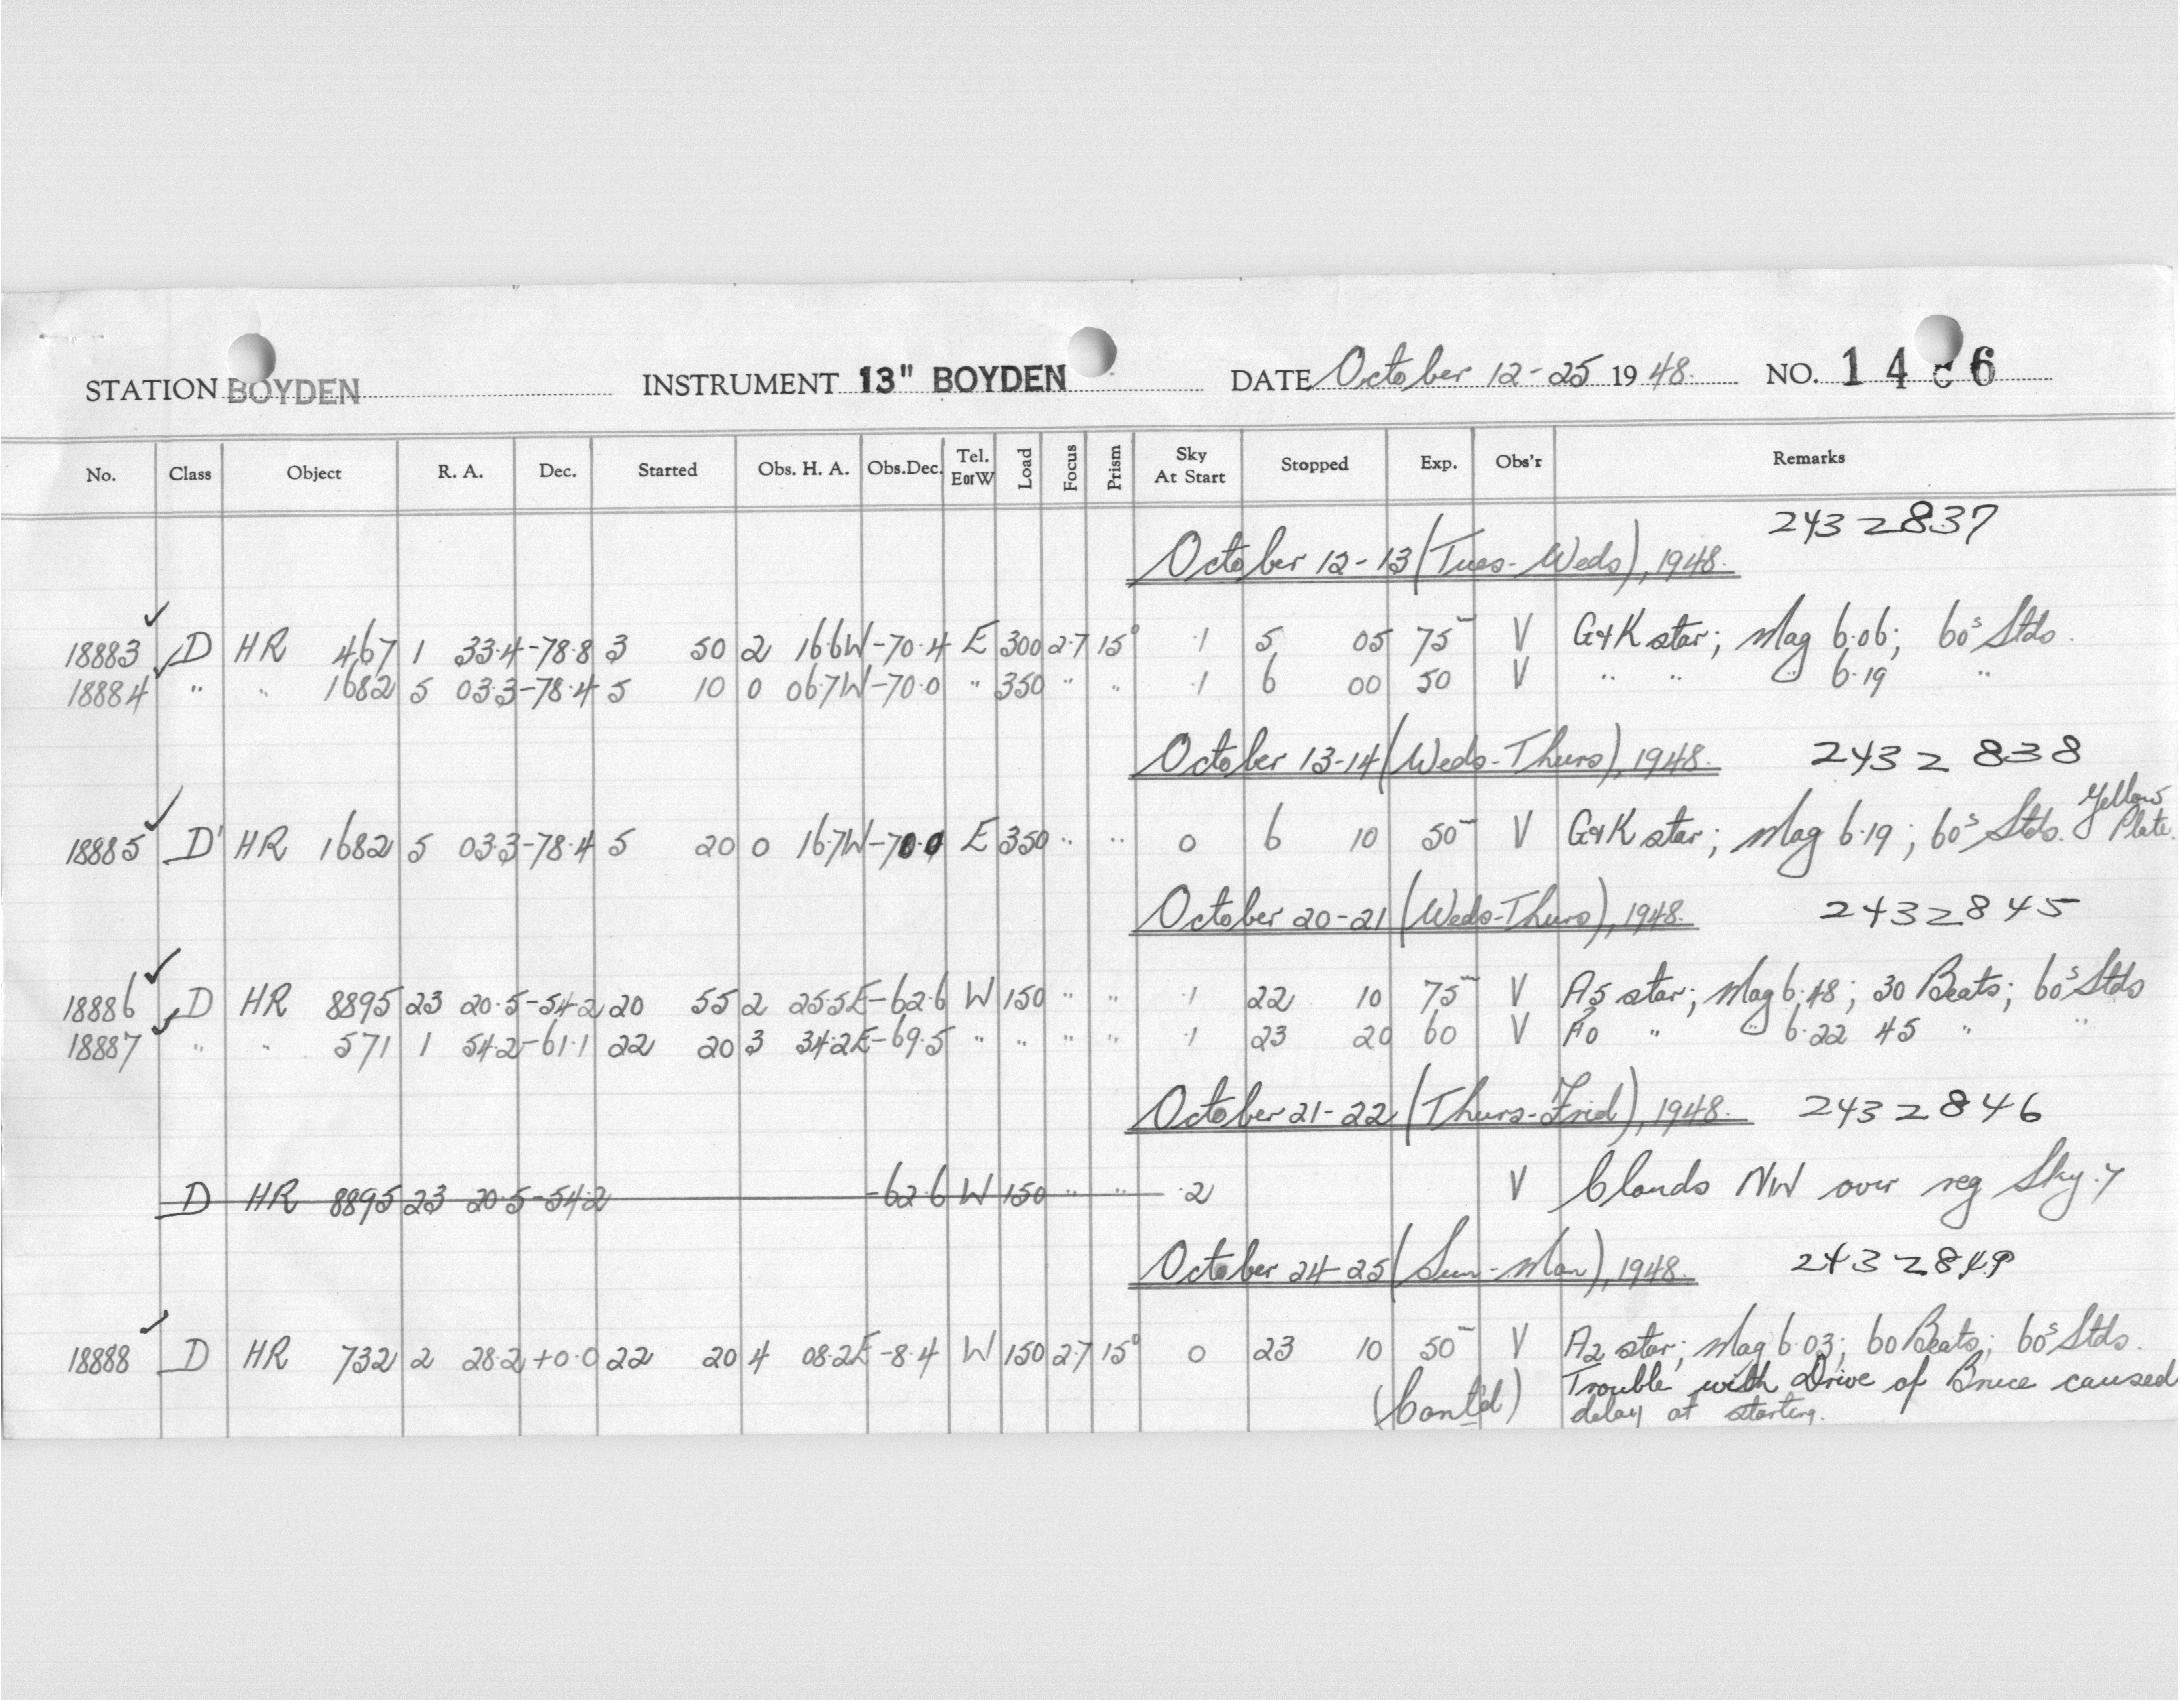 STATION BOYDEN INSTRUMENT 13" BOYDEN DATE October 12-25 1948. NO. 14 6
No. Class Object R. A. Dec. Started Obs. H. A. Obs.Dec. Tel. EorW Load Focus Prism Sky At Start Stopped Exp. Obs'r Remarks
2432837
October 12-13 (Tues-Weds), 1948.
18883 ✓ D HR 467 1 33.4 -78.8 3 50 2 16.6W -70.4 E 300 2.7 15° .1 5 05 75 V G&K star; Mag 6.06; 60s Stds.
18884 ✓ " " 1682 5 03.3 -78.4 5 10 0 06.7W -70.0 " 350 " " .1 6 00 50 V " " " 6.19 "
October 13-14 (Weds-Thurs), 1948. 2432838
18885 ✓ D' HR 1682 5 03.3 -78.4 5 20 0 16.7W -70.0 E 350 " " 0 6 10 50 V G&K star; Mag 6.19; 60s Stds. Yellow Plate.
October 20-21 (Weds-Thurs), 1948. 2432845
18886 ✓ D HR 8895 23 20.5 -54.2 20 55 2 25.5E -62.6 W 150 " " .1 22 10 75 V A5 star; Mag 6.48; 30 Beats; 60s Stds
18887 ✓ " " 571 1 54.2 -61.1 22 20 3 34.2E -69.5 " " " " .1 23 20 60 V F0 " " 6.22 45 " "
October 21-22 (Thurs-Frid), 1948. 2432846
D HR 8895 23 20.5 -54.2 -62.6 W 150 " " .2 V Clouds NW over reg Sky.7
October 24-25 (Sun-Mon), 1948. 2432849
18888 ✓ D HR 732 2 28.2 +0.0 22 20 4 08.2E -8.4 W 150 2.7 15° 0 23 10 50 V A2 star; Mag 6.03; 60 Beats; 60s Stds.
Trouble with Drive of Bruce caused
(Cont'd) delay at starting.